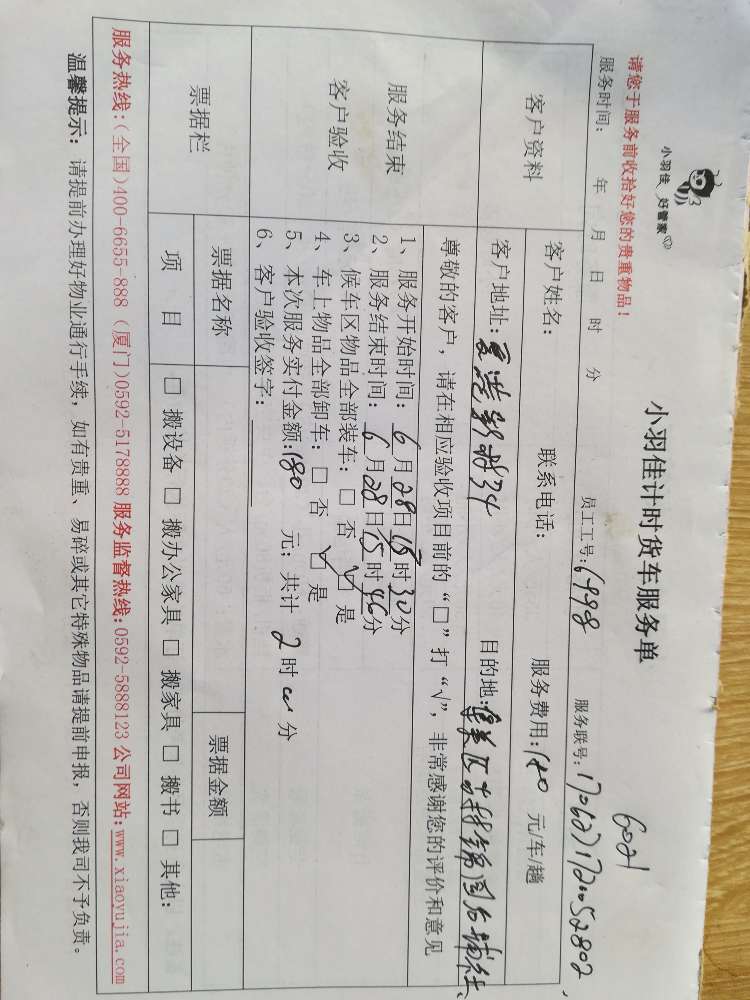 小羽佳 好管家
小羽佳计时货车服务单
6021
请您于服务前收拾好您的贵重物品！
服务时间： 年 月 日 时 分 员工工号：6998 服务联号：170627172052802
客户资料
客户姓名： 联系电话： 服务费用：180 元/车/趟
客户地址： 目的地：集美区
服务结束
客户验收
尊敬的客户，请在相应验收项目前的“□”打“√”，非常感谢您的评价和意见
1、服务开始时间：6月28日15时30分
2、服务结束时间：6月28日15时46分
3、候车区物品全部装车：□ 否 ☑ 是
4、车上物品全部卸车：□ 否 ☑ 是
5、本次服务实付金额：180 元；共计 2 时 分
6、客户验收签字：
票据栏
票据名称 票据金额
项 目 □ 搬设备 □ 搬办公家具 □ 搬家具 □ 搬书 □ 其他：
服务热线：(全国)400-6655-888 (厦门)0592-5178888 服务监督热线：0592-5888123 公司网站：www.xiaoyujia.com
温馨提示：请提前办理好物业通行手续，如有贵重、易碎或其它特殊物品请提前申报，否则我司不予负责。